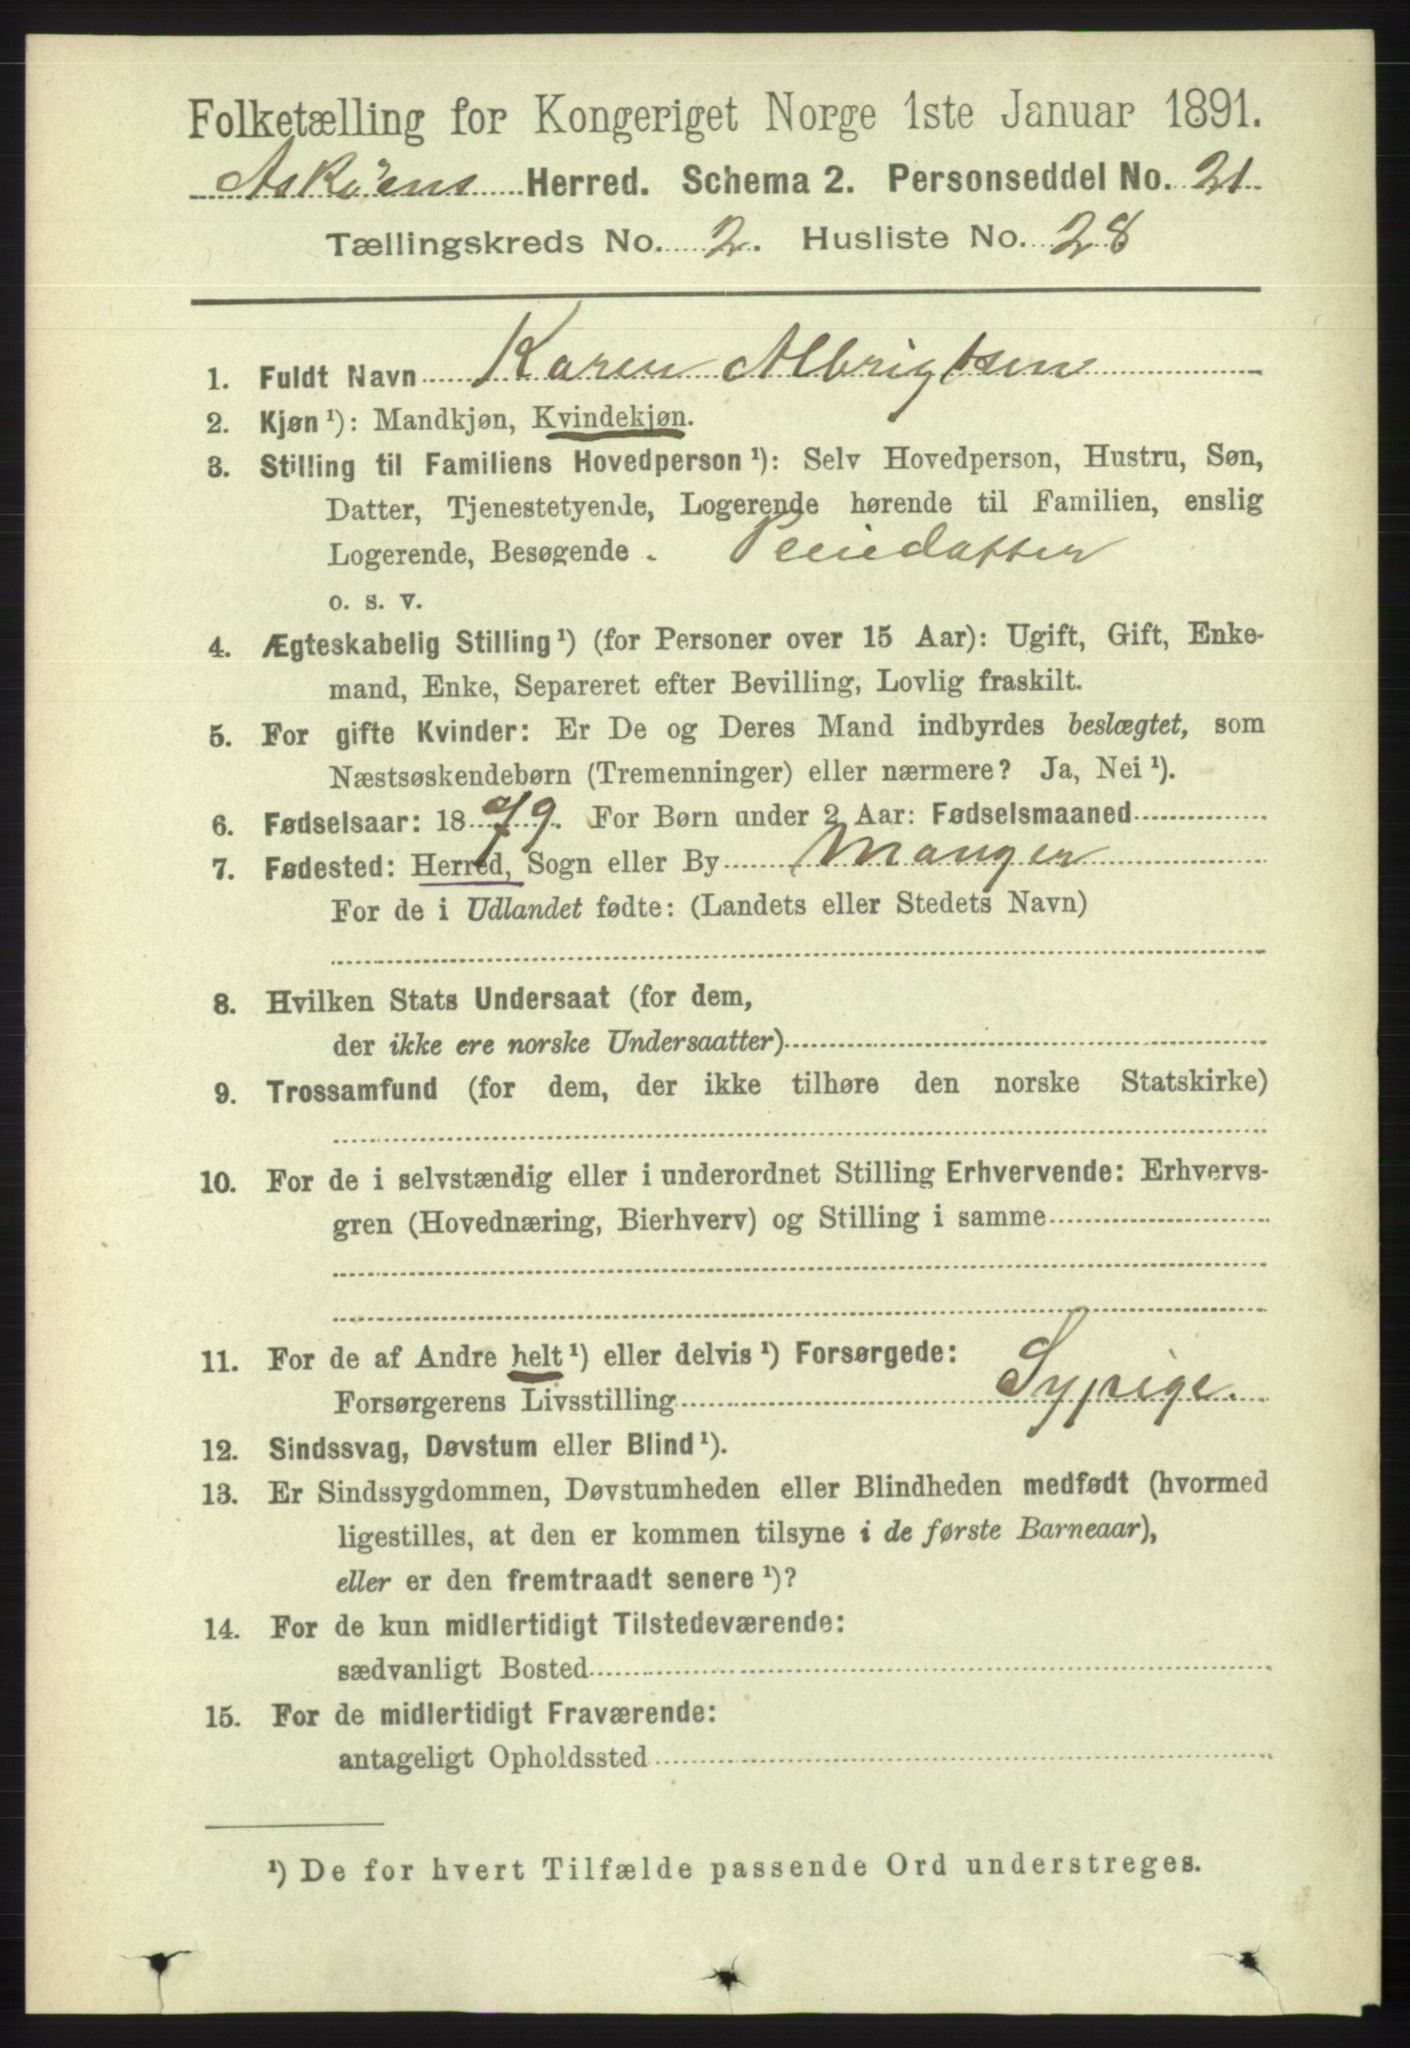 Folketælling for Kongeriget Norge 1ste Januar 1891.
Askøens Herred. Schema 2. Personseddel No. 21
Tællingskreds No. 2. Husliste No. 28
1. Fuldt Navn Karen Albrigtsen
2. Kjøn¹): Mandkjøn, Kvindekjøn.
3. Stilling til Familiens Hovedperson¹): Selv Hovedperson, Hustru, Søn,
Datter, Tjenestetyende, Logerende hørende til Familien, enslig
Logerende, Besøgende . Pleiedatter
o. s. v.
4. Ægteskabelig Stilling¹) (for Personer over 15 Aar): Ugift, Gift, Enke-
mand, Enke, Separeret efter Bevilling, Lovlig fraskilt.
5. For gifte Kvinder: Er De og Deres Mand indbyrdes beslægtet, som
Næstsøskendebørn (Tremenninger) eller nærmere? Ja, Nei¹).
6. Fødselsaar: 1879. For Børn under 2 Aar: Fødselsmaaned
7. Fødested: Herred, Sogn eller By Manger
For de i Udlandet fødte: (Landets eller Stedets Navn)
8. Hvilken Stats Undersaat (for dem,
der ikke ere norske Undersaatter)
9. Trossamfund (for dem, der ikke tilhøre den norske Statskirke)
10. For de i selvstændig eller i underordnet Stilling Erhvervende: Erhvervs-
gren (Hovednæring, Bierhverv) og Stilling i samme
11. For de af Andre helt¹) eller delvis¹) Forsørgede:
Forsørgerens Livsstilling Sypige.
12. Sindssvag, Døvstum eller Blind¹).
13. Er Sindssygdommen, Døvstumheden eller Blindheden medfødt (hvormed
ligestilles, at den er kommen tilsyne i de første Barneaar),
eller er den fremtraadt senere¹)?
14. For de kun midlertidigt Tilstedeværende:
sædvanligt Bosted
15. For de midlertidigt Fraværende:
antageligt Opholdssted
¹) De for hvert Tilfælde passende Ord understreges.